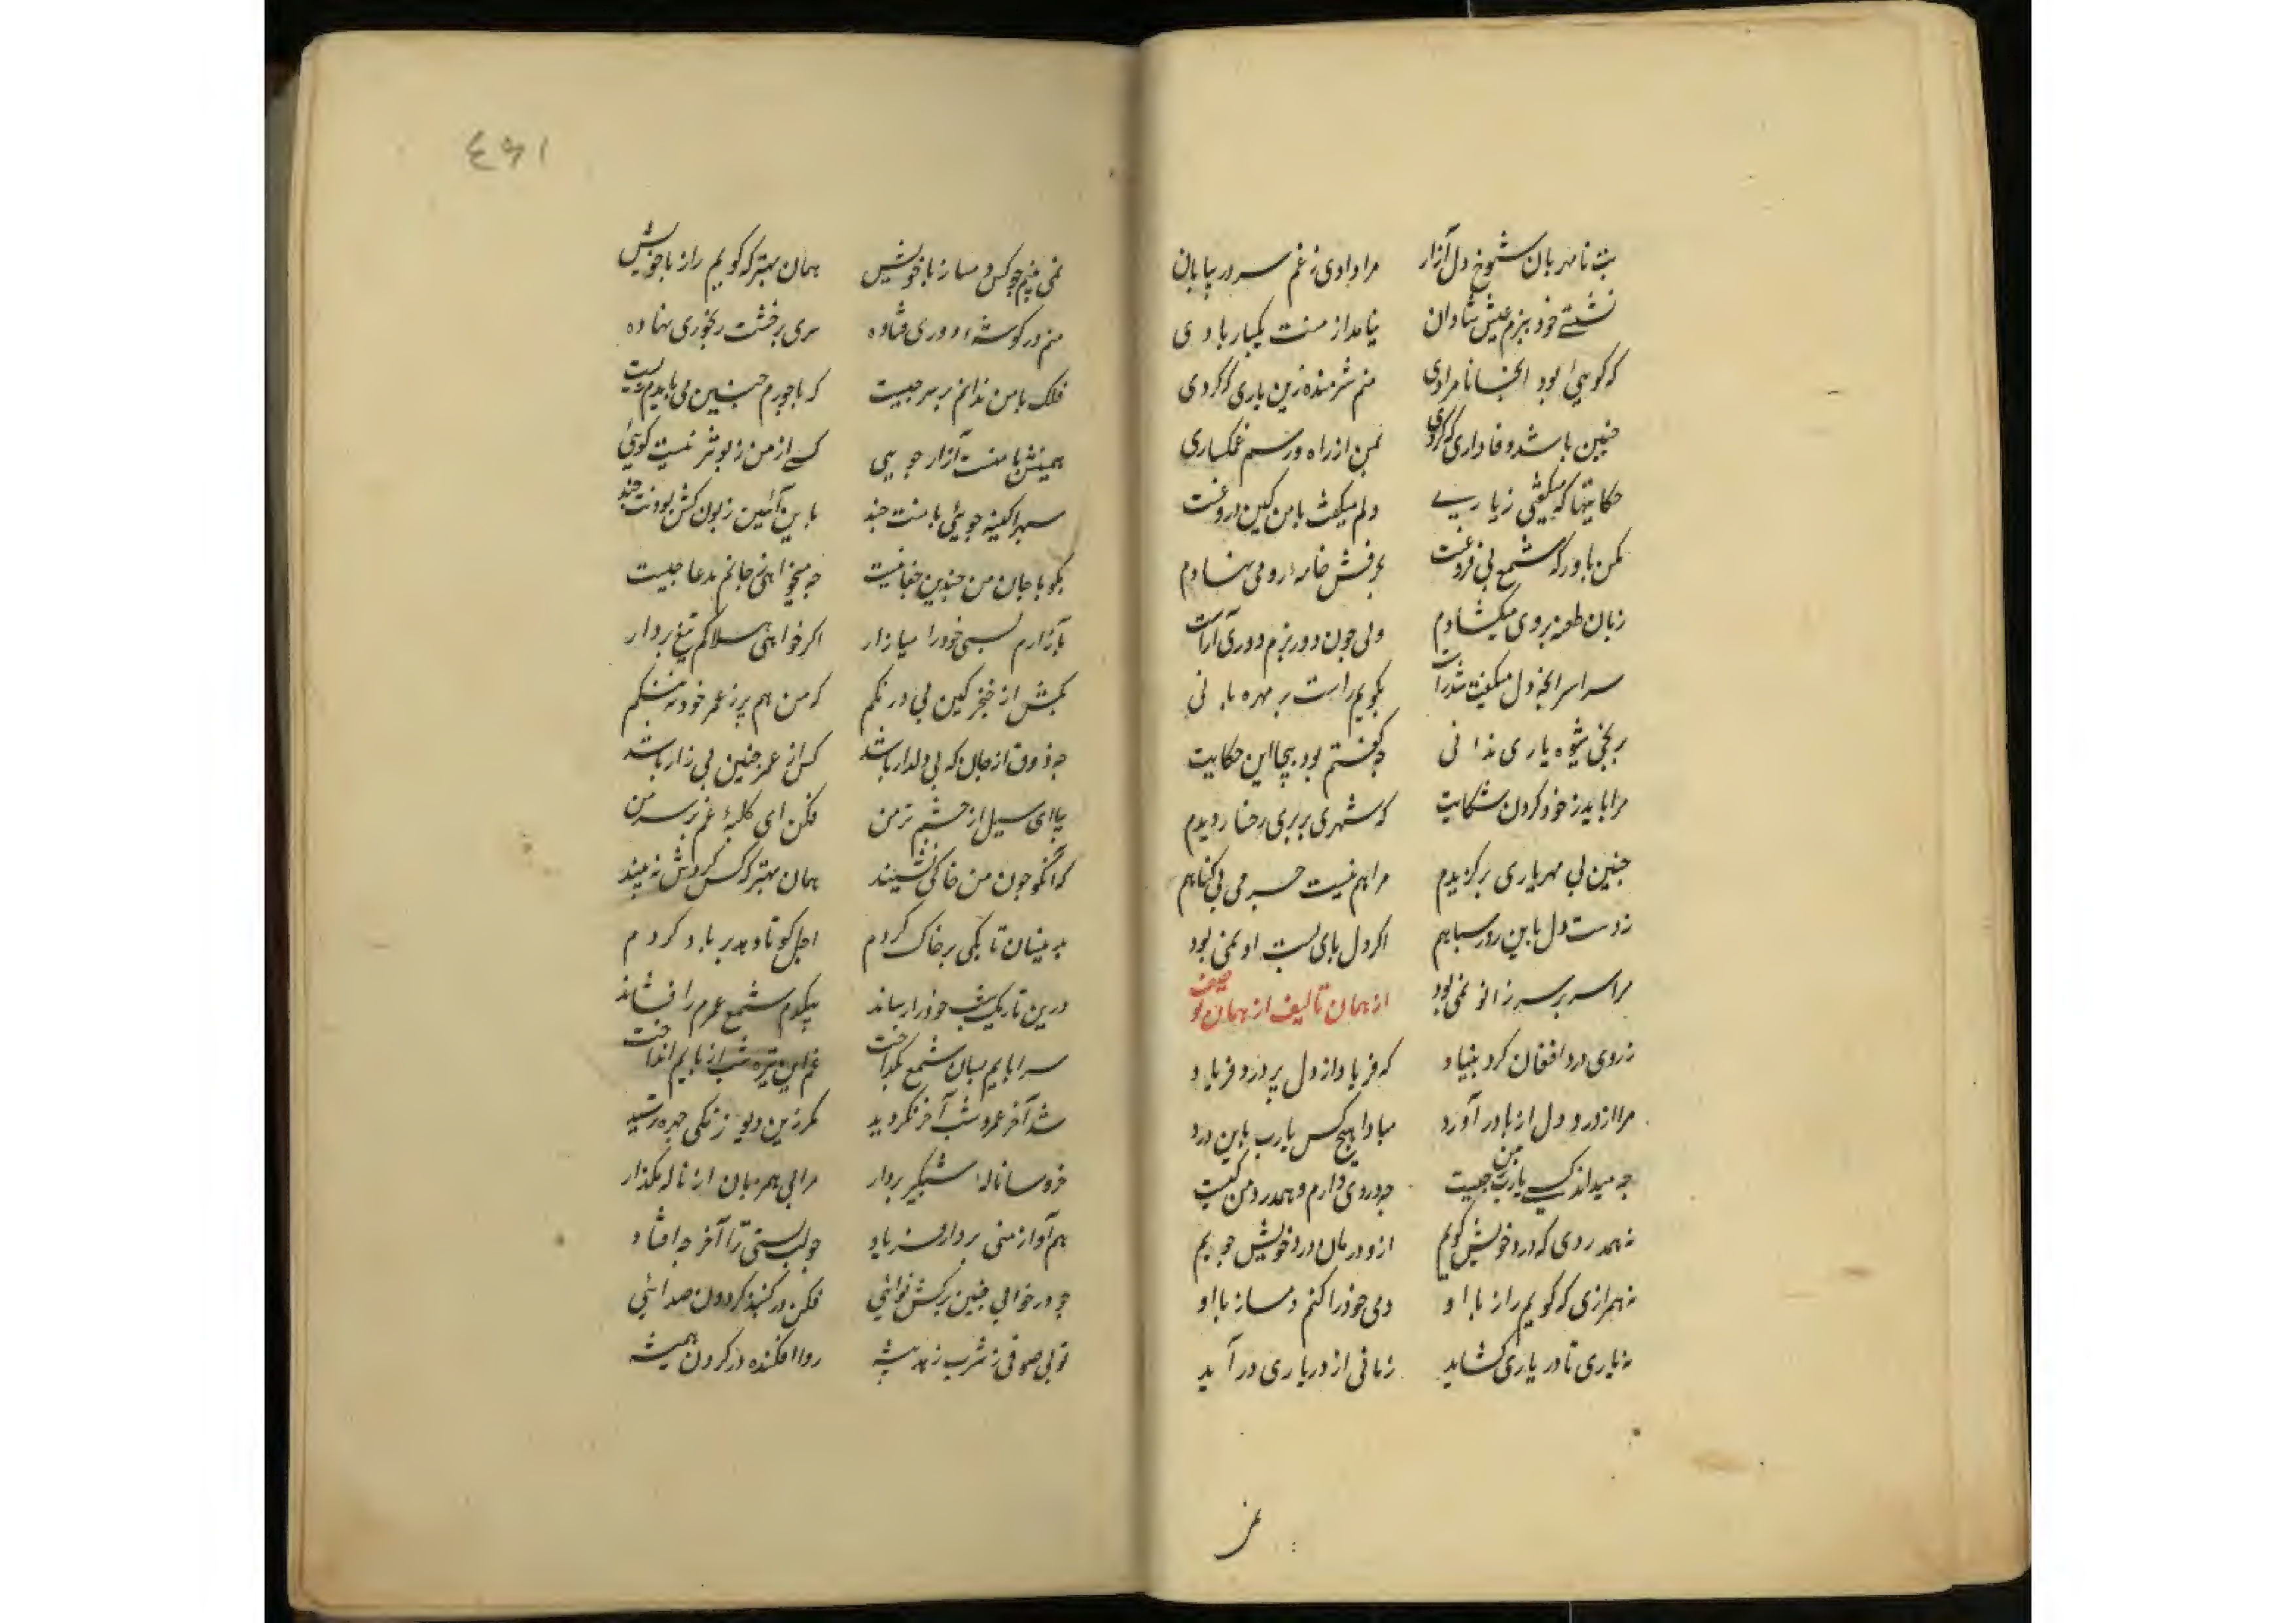 بت نامهربان شوخ دل آزار مرا دادی ز غم سر در بیابان
نشستی خود ببزم عیش شادان نیامد از منت یکبار یادی
که گویی بود اینجا نامرادی منم شرمنده زین یاری که کردی
چنین باشد وفاداری که کردی بمن از راه و رسم غمکساری
حکایتها که میگفتی ز یاری دلم میگفت با من کین دروغست
مکن باور که شمع بی فروغست بحرفش خامه رو می نهادم
زبان طعنه بروی میکشادم ولی چون دور بزم دوری آراست
سراسر انچه دل میگفت شد راست بگویم راست بر مهره بانی
بریخی شیوه یاری ندانی چه گفتم بود بیجا این حکایت
مرا باید ز خود کردن شکایت که شهری بربری رخسار دیدم
چنین بی مهر یاری برگزیدم مرا هم نیست جرمی بی گناهم
ز دست دل باین روز سیاهم اگر دل پای بست او نمی بود
مرا سر بر سر زانو نمی بود از همان تالیف از همان تو صیف
ز روی درد افغان کرد بنیاد که فریاد از دل پر درد فریاد
مرا از درد دل از پا در آورد مبادا هیچکس یارب باین درد
چه میداند کسی یارب من چیست چه دردی دارم و همدرد من کیست
نه همدردی که درد خویش گویم ازو درمان درد خویش جویم
نه همرازی که گویم راز با او دمی خود را کنم دمساز با او
نه یاری تا در یاری کشاید زمانی از در یاری در آید
۱۶۴
نمی بینم چو کس دمساز با خویش همان بهتر که گویم راز با خویش
منم در گوشه دوری فتاده سری بر خشت رنجوری نهاده
فلک با من ندانم بر سر چیست که با جورم چنین می بایدم زیست
همینش با منست آزار جویی کسی از من زبونتر نیست گویی
سپهرا کینه جویی با منت چند باین آئین زبون کش بودنت چند
بگو با جان من چندین جفا چیست چه میخواهی ز جانم مدعا چیست
بآزارم بسی خود را میازار اگر خواهی هلاکم تیغ بردار
بکش از خنجر کین بی درنگم که من هم پر ز عمر خود به تنگم
چه ذوق از جان که بی دلدار باشد کس از عمر چنین بیزار باشد
بیا ای سیل از چشم تر من فکن ای کلبه غم بر سر من
که آنکو چون من خاکی نشیند همان بهتر که کس کردش نه بیند
بدینسان تا بکی بر خاک کردم اجل کو تا دهد بر باد کردم
درین تاریک شب خود را رساند بیکدم شمع عمرم را فشاند
سراپایم بسان شمع بگداخت غم این تیره شب از پایم انداخت
شد آخر عمر و شب آخر نگردید مگر زین دیو زنگی چهره ترسید
خروسا ناله شبگیر بردار مرا بی همزبان از ناله مگذار
هم آواز منی بردار فریاد چو لب بستی ترا آخر چه افتاد
چو در خوابی چنین برکش نوائی فکن در گنبد گردون صدائی
تویی صوفی ز مشرب زهد پیشه ردا افکنده در گردن همیشه